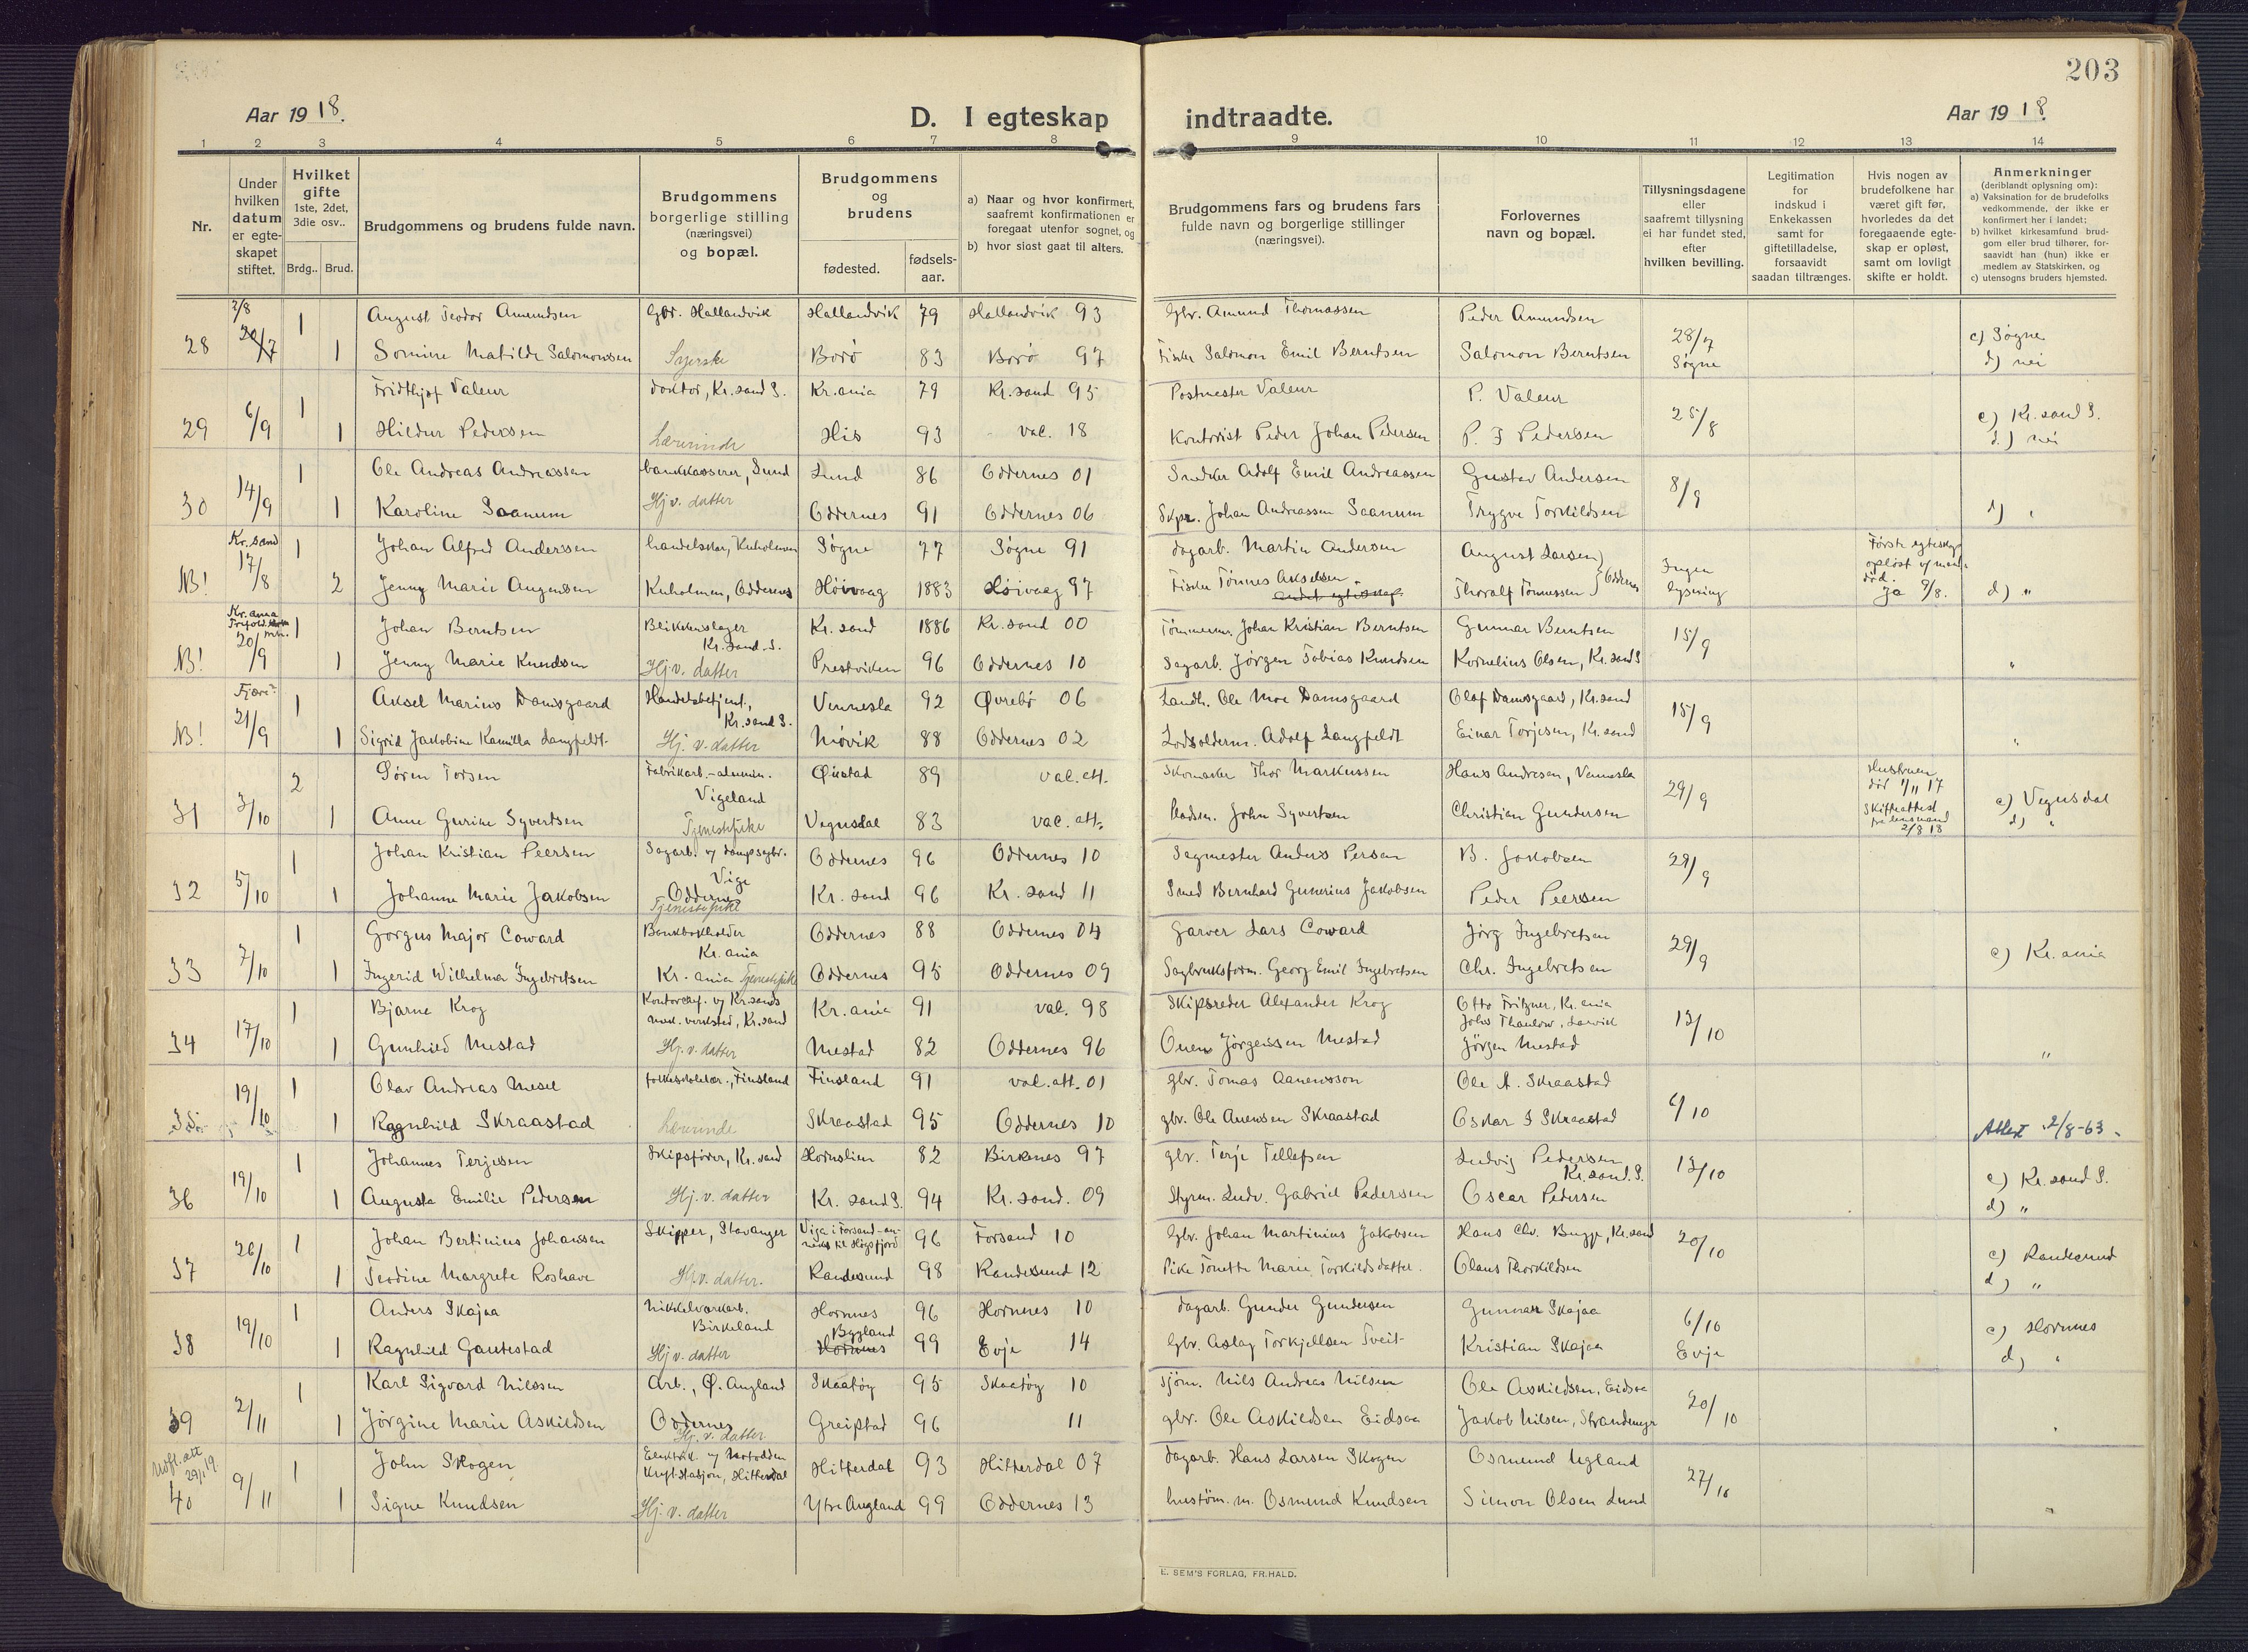 203
Aar 1918.
D. I egteskap indtraadte.
Aar 1918.
1 2 3 4 5 6 7 8 9 10 11 12 13 14
Nr.
Under hvilken datum er egteskapet stiftet.
Hvilket gifte 1ste, 2det, 3die osv..
Brdg.. Brud.
Brudgommens og brudens fulde navn.
Brudgommens borgerlige stilling (næringsvei) og bopæl.
Brudgommens og brudens
fødested. fødselsaar.
a) Naar og hvor konfirmert, saafremt konfirmationen er foregaat utenfor sognet, og
b) hvor sidst gaat til alters.
Brudgommens fars og brudens fars fulde navn og borgerlige stillinger (næringsvei).
Forlovernes navn og bopæl.
Tillysningsdagene eller saafremt tillysning ei har fundet sted, efter hvilken bevilling.
Legitimation for indskud i Enkekassen samt for giftetilladelse, forsaavidt saadan tiltrænges.
Hvis nogen av brudefolkene har været gift før, hvorledes da det foregaaende egteskap er opløst, samt om lovligt skifte er holdt.
Anmerkninger
(deriblandt oplysning om):
a) Vaksination for de brudefolks vedkommende, der ikke er konfirmert her i landet;
b) hvilket kirkesamfund brudgom eller brud tilhører, forsaavidt han (hun) ikke er medlem av Statskirken, og
c) utensogns bruders hjemsted.
2/8 1 August Teodor Amundsen Gbr. Hallandvik Hallandvik 79 Hallandvik 93 Gbr. Amund Thomassen Peder Amundsen 28/7 c) Søgne
28 1 Somine Matilde Salomonsen Syerske Borø 83 Borø 97 Fisker Salomon Emil Berntsen Salomon Berntsen Søgne d) nei
6/9 1 Fridthjof Valeur doktor, Kr.sand S. Kr.ania 79 Kr.sand 95 Postmester Valeur P. Valeur 25/8 c) Kr.sand S.
29 1 Hildur Pedersen Lærerinde His 93 val. 18 Kontorist Peder Johan Pedersen P. J Pedersen d.) nei
14/9 1 Ole Andreas Andreassen bankkasserer, Lund Lund 86 Oddernes 01 Snedker Adolf Emil Andreassen Gustav Andersen 8/9
30 1 Karoline Saanum Hj v. datter Oddernes 91 Oddernes 06 Skpr. Johan Andreassen Saanum Trygve Torkildsen d) "
Kr.sand 17/8 1 Johan Alfred Andersen handelsmar, Kuholmen Søgne 77 Søgne 91 dagarb. Martin Andersen August Larsen Ingen Første egteskap opløst v/ mans død.
NB! 2 Jenny Marie Augensen Kuholmen, Oddernes Høivaag 1883 Høivaag 97 Fisker Tønnes Akselsen Thoralf Tønnessen Oddernes lysning Ja 9/8. d) "
andet egteskap
Kr.ania 20/9 1 Johan Berntsen Blikkenslager Kr.sand.S. Kr.sand 1886 Kr.sand 00 Tømmerm. Johan Kristian Berntsen Gunnar Berntsen 15/9
NB! 1 Jenny Marie Knudsen Hj v. datter Prestviken 96 Oddernes 10 Sagarb. Jörgen Tobias Knudsen Kornelius Olsen, Kr.sand S "
Fjære 21/9 1 Aksel Marius Damsgaard Handelsbetjent, Kr.sand S. Vennesla 92 Øvrebø 06 Landh. Ole Moe Damsgaard Olaf Damsgaard, Kr.sand 15/9
NB! 1 Sigrid Jakobine Kamilla Langfeldt Hj. v. datter Møvik 88 Oddernes 02 Lodsolderm. Adolf Langfeldt Einar Torjesen, Kr.sand "
3/10 2 Søren Torsen Fabrikarb.-alumin. Vigeland Øustad 89 val.att. Skomaker Thor Markussen Hans Andresen, Vennesla 29/9 Hustruen død 1/11 17
31 1 Anne Gurine Syvertsen Tjenestepike Vegusdal 83 vac. att. Pladsm. John Syvertsen Christian Gundersen Skifteattest fra lensmand 2/8 18 c) Vegusdal d) "
5/10 1 Johan Kristian Peersen Sagarb. v/ dampsagbr. Vige Oddernes 96 Oddernes 10 Sagmester Anders Persen B. Jakobsen 29/9
32 1 Johanne Marie Jakobsen Oddernes Tjenestepike Kr. sand 96 Kr. sand 11 Smed Bernhard Gunerius Jakobsen Peder Peersen
7/10 1 Gorgus Major Coward Bankbokholder Kr. ania Oddernes 88 Oddernes 04 Garver Lars Coward Jörg Ingebretsen 29/9 c) Kr.ania
33 1 Ingerid Wilhelma Ingebretsen Kr. ania Tjenestepike Oddernes 95 Oddernes 09 Sagbruksform. Georg Emil Ingebretsen Chr. Ingebretsen
17/10 1 Bjarne Krog Kontorchef. v/ Kr.sands mek. verksted, Kr.sand Kr.ania 91 val. 98 Skipsreder Alexander Krog Otto Fritzner, Kr.ania 13/10
John Thaulow, Larvik
34 1 Gunhild Mestad Hj. v. datter Mestad 82 Oddernes 96 Ouen Jörgenssen Mestad Jörgen Mestad "
19/10 1 Olav Andreas Mesel folkeskolelær., Finsland Finsland 91 val.att. 01 gbr. Tomas Aanensson Ole A. Skraastad 6/10
35 1 Ragnhild Skraastad Lærerinde Skraastad 95 Oddernes 10 gbr. Ole Anensen Skraastad Oskar J Skraastad Attest 2/8-63.
19/10 1 Johannes Terjesen Skipsfører, Kr.sand Hornslien 82 Birkenes 97 gbr. Terje Tellefsen Ludvig Pedersen Kr.sand.S. 13/10 c) Kr.sand S.
36 1 Augusta Emilie Pedersen Hj. v. datter Kr. sand S. 94 Kr. sand. 09 Styrm. Ludv. Gabriel Pedersen Oscar Pedersen d) "
26/10 1 Johan Bertinius Johanssen Skipper, Stavanger Viga i Forsand-anneks til Høgsfjord 96 Forsand 10 Gbr. Johan Martinius Jakobsen Hans Chr. Bugge, Kr.sand 20/10 c) Randesund
37 1 Teodine Margrete Roshave Hj.v. datter. Randesund 98 Randesund 12 Pike Tonette Marie Torkildsdatter. Olaus Thorkildsen d) "
19/10 1 Anders Skajaa Nikkelverkarb. Birkeland Hornnes 96 Hornnes 10 dagarb. Gunder Gundersen Gunnar Skajaa 6/10 c) Hornnes
38 1 Ragnhild Gautestad Hj v. datter Bygland Hornnes 99 Evje 14 Gbr. Aslag Torkjellsen Tveit Kristian Skajaa Evje d) "
2/11 1 Karl Sigvard Nilssen Arb., Ø. Augland Skaatøy 95 Skaatøy 10 sjøm. Nils Andreas Nilsen Ole Askildsen, Eidsaa 20/10
39 1 Jørgine Marie Askildsen Oddernes Hj. v. datter Greipstad 96 11 gbr. Ole Askildsen Eidsaa Jakob Nilsen, Strandmyr
Utfl.att 29/1 19.
9/11 1 John Skogen Elektrik. v/ Notodden Kraftstasjon, Hitterdal Hitterdal 93 Hitterdal 07 dagarb. Hans Larsen Skogen Osmund Ugland 27/10
40 1 Signe Knudsen Hj. v. datter Ytre Augland 99 Oddernes 13 hustøm. m. Osmund Knudsen Simon Olsen Lund "
E. SEM'S FORLAG, FR.HALD.